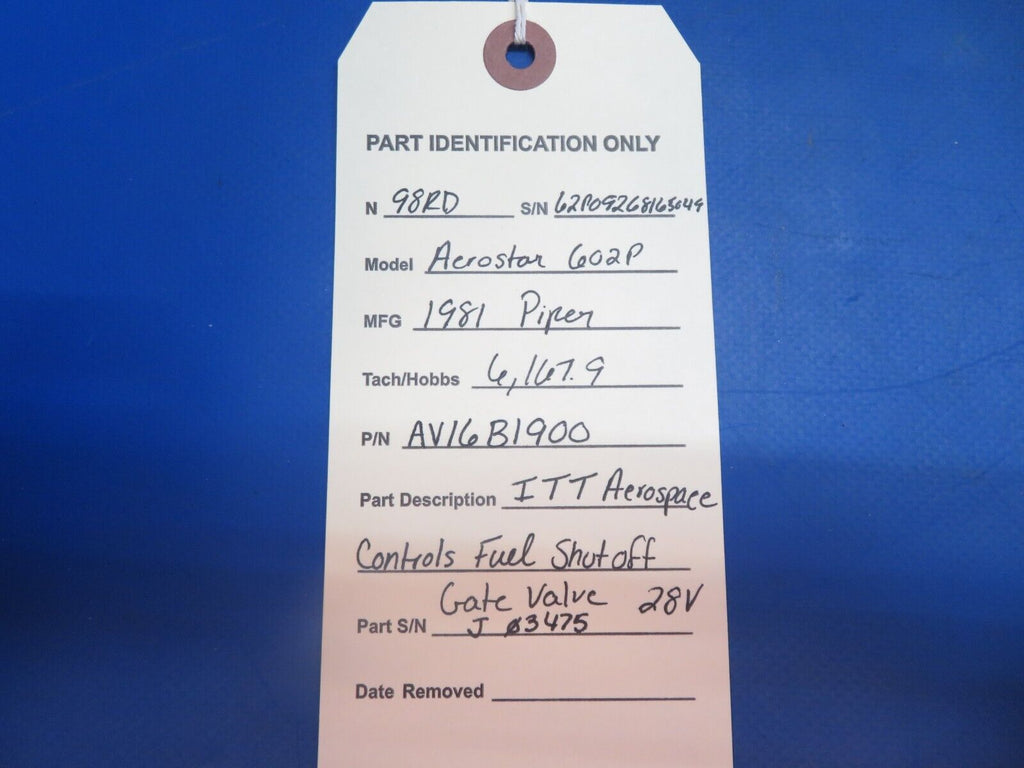 PART IDENTIFICATION ONLY
N 98RD S/N 62P09268165049
Model Aerostar 602P
MFG 1981 Piper
Tach/Hobbs 6,167.9
P/N AV16B1900
Part Description ITT Aerospace
Controls Fuel Shutoff
Gate Valve 28V
Part S/N J 03475
Date Removed